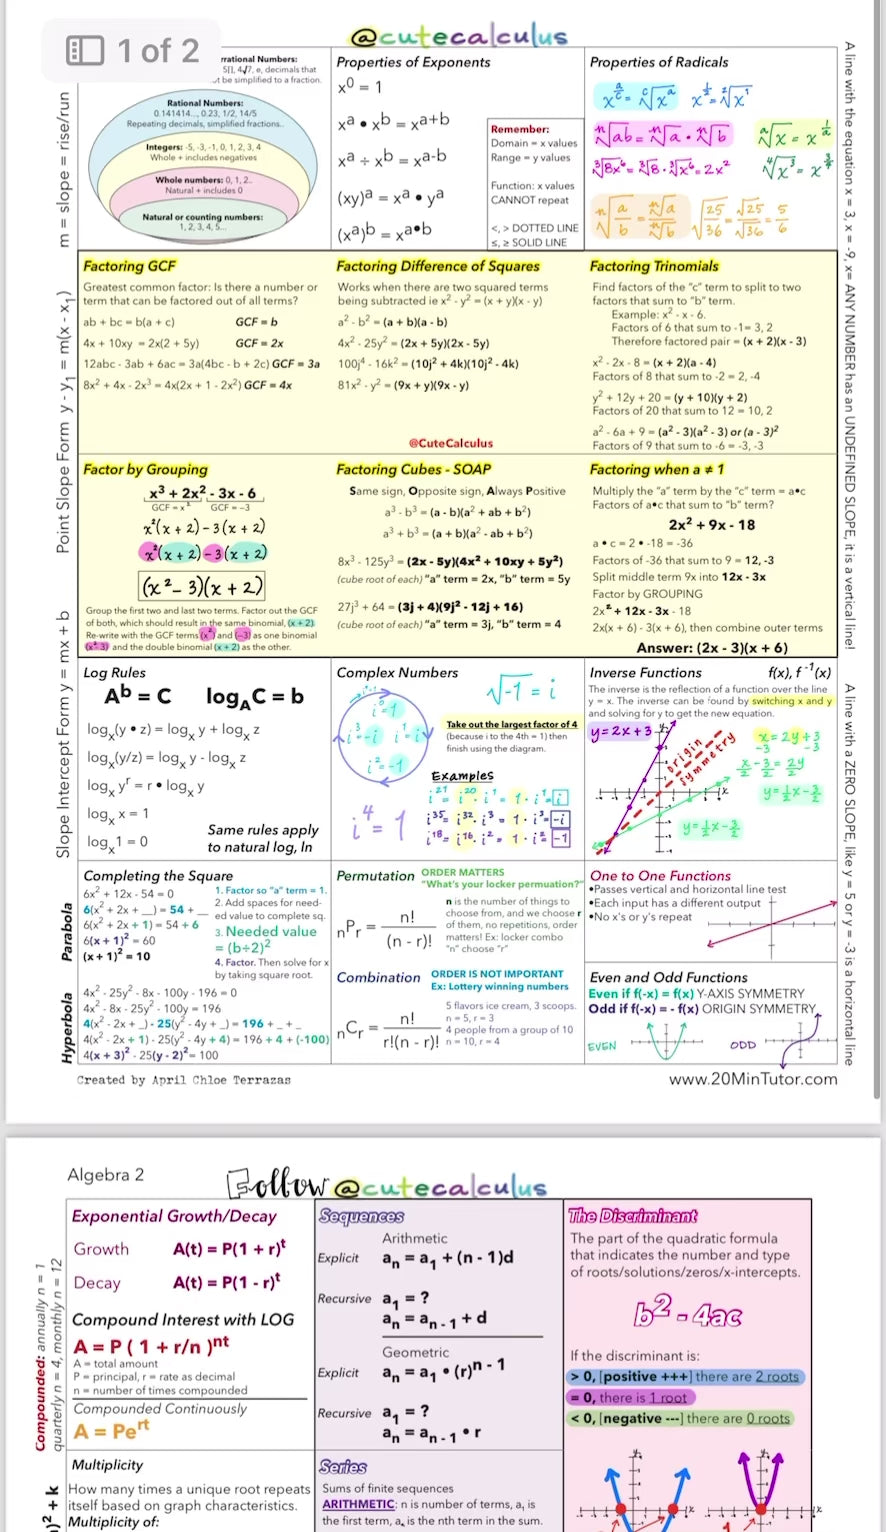 1 of 2
@cutecalculus
A line with the equation x = 3, x = -9, x= ANY NUMBER has an UNDEFINED SLOPE, it is a vertical line!
A line with a ZERO SLOPE, like y = 5 or y = -3 is a horizontal line
m = slope = rise/run
Point Slope Form y - y1 = m(x - x1)
Slope Intercept Form y = mx + b
Parabola
Hyperbola
rrational Numbers:
e, decimals that
be simplified to a fraction.
Rational Numbers:
0.141414..., 0.23, 1/2, 14/5
Repeating decimals, simplified fractions..
Integers: -5, -3, -1, 0, 1, 2, 3, 4
Whole + includes negatives
Whole numbers: 0, 1, 2..
Natural + includes 0
Natural or counting numbers:
1, 2, 3, 4, 5...
Properties of Exponents
x⁰ = 1
xᵃ • xᵇ = xᵃ⁺ᵇ
xᵃ ÷ xᵇ = xᵃ⁻ᵇ
(xy)ᵃ = xᵃ • yᵃ
(xᵃ)ᵇ = xᵃ•ᵇ
Remember:
Domain = x values
Range = y values
Function: x values
CANNOT repeat
<, > DOTTED LINE
≤, ≥ SOLID LINE
Properties of Radicals
x^(a/c) = ᶜ√xᵃ x^(1/2) = ²√x¹
ⁿ√ab = ⁿ√a • ⁿ√b
ᵃ√x = x^(1/a)
³√8x⁶ = ³√8 • ³√x⁶ = 2x²
⁴√x³ = x^(3/4)
ⁿ√(a/b) = ⁿ√a/ⁿ√b √(25/36) = √25/√36 = 5/6
Factoring GCF
Greatest common factor: Is there a number or
term that can be factored out of all terms?
ab + bc = b(a + c) GCF = b
4x + 10xy = 2x(2 + 5y) GCF = 2x
12abc - 3ab + 6ac = 3a(4bc - b + 2c) GCF = 3a
8x² + 4x - 2x³ = 4x(2x + 1 - 2x²) GCF = 4x
Factoring Difference of Squares
Works when there are two squared terms
being subtracted ie x² - y² = (x + y)(x - y)
a² - b² = (a + b)(a - b)
4x² - 25y² = (2x + 5y)(2x - 5y)
100j⁴ - 16k² = (10j² + 4k)(10j² - 4k)
81x² - y² = (9x + y)(9x - y)
@CuteCalculus
Factoring Trinomials
Find factors of the "c" term to split to two
factors that sum to "b" term.
Example: x² - x - 6.
Factors of 6 that sum to -1= 3, 2
Therefore factored pair = (x + 2)(x - 3)
x² - 2x - 8 = (x + 2)(a - 4)
Factors of 8 that sum to -2 = 2, -4
y² + 12y + 20 = (y + 10)(y + 2)
Factors of 20 that sum to 12 = 10, 2
a² - 6a + 9 = (a² - 3)(a² - 3) or (a - 3)²
Factors of 9 that sum to -6 = -3, -3
Factor by Grouping
x³ + 2x² - 3x - 6
GCF = x² GCF = -3
x²(x + 2) - 3(x + 2)
x²(x + 2) - 3(x + 2)
(x² - 3)(x + 2)
Group the first two and last two terms. Factor out the GCF
of both, which should result in the same binomial, (x + 2)
Re-write with the GCF terms (x²) and (-3) as one binomial
(x²-3) and the double binomial (x+2) as the other.
Factoring Cubes - SOAP
Same sign, Opposite sign, Always Positive
a³ - b³ = (a - b)(a² + ab + b²)
a³ + b³ = (a + b)(a² - ab + b²)
8x³ - 125y³ = (2x - 5y)(4x² + 10xy + 5y²)
(cube root of each) "a" term = 2x, "b" term = 5y
27j³ + 64 = (3j + 4)(9j² - 12j + 16)
(cube root of each) "a" term = 3j, "b" term = 4
Factoring when a ≠ 1
Multiply the "a" term by the "c" term = a•c
Factors of a•c that sum to "b" term?
2x² + 9x - 18
a • c = 2 • -18 = -36
Factors of -36 that sum to 9 = 12, -3
Split middle term 9x into 12x - 3x
Factor by GROUPING
2x² + 12x - 3x - 18
2x(x + 6) - 3(x + 6), then combine outer terms
Answer: (2x - 3)(x + 6)
Log Rules
Aᵇ = C log_A C = b
log_x(y • z) = log_x y + log_x z
log_x(y/z) = log_x y - log_x z
log_x yʳ = r • log_x y
log_x x = 1
log_x 1 = 0
Same rules apply
to natural log, ln
Complex Numbers
√-1 = i
i⁰=1
i³=-i i¹=i
i²=-1
Take out the largest factor of 4
(because i to the 4th = 1) then
finish using the diagram.
Examples
i⁴ = 1
i²¹ = i²⁰ • i¹ = 1 • i¹ = i
i³⁵ = i³² • i³ = 1 • i³ = -i
i¹⁸ = i¹⁶ • i² = 1 • i² = -1
Inverse Functions f(x), f⁻¹(x)
The inverse is the reflection of a function over the line
y = x. The inverse can be found by switching x and y
and solving for y to get the new equation.
y = 2x + 3
origin symmetry
x = 2y + 3
-3 -3
x/2 - 3/2 = 2y/2
y = ½x - 3/2
y = ½x - 3/2
Completing the Square
6x² + 12x - 54 = 0
6(x² + 2x + __) = 54 + __
6(x² + 2x + 1) = 54 + 6
6(x + 1)² = 60
(x + 1)² = 10
1. Factor so "a" term = 1.
2. Add spaces for need-
ed value to complete sq.
3. Needed value
= (b÷2)²
4. Factor. Then solve for x
by taking square root.
4x² - 25y² - 8x - 100y - 196 = 0
4x² - 8x - 25y² - 100y = 196
4(x² - 2x + _) - 25(y² - 4y + _) = 196 + _ + _
4(x² - 2x + 1) - 25(y² - 4y + 4) = 196 + 4 + (-100)
4(x + 3)² - 25(y - 2)² = 100
Permutation ORDER MATTERS
"What's your locker permuation?"
nPr = n!/(n - r)!
n is the number of things to
choose from, and we choose r
of them, no repetitions, order
matters! Ex: locker combo
"n" choose "r"
Combination ORDER IS NOT IMPORTANT
Ex: Lottery winning numbers
nCr = n!/r!(n - r)!
5 flavors ice cream, 3 scoops.
n = 5, r = 3
4 people from a group of 10
n = 10, r = 4
One to One Functions
•Passes vertical and horizontal line test
•Each input has a different output
•No x's or y's repeat
Even and Odd Functions
Even if f(-x) = f(x) Y-AXIS SYMMETRY
Odd if f(-x) = - f(x) ORIGIN SYMMETRY
EVEN ODD
Created by April Chloe Terrazas
www.20MinTutor.com
Algebra 2
Follow @cutecalculus
Compounded: annually n = 1
quarterly n = 4, monthly n = 12
)² + k
Exponential Growth/Decay
Growth A(t) = P(1 + r)ᵗ
Decay A(t) = P(1 - r)ᵗ
Compound Interest with LOG
A = P ( 1 + r/n )ⁿᵗ
A = total amount
P = principal, r = rate as decimal
n = number of times compounded
Compounded Continuously
A = Peʳᵗ
Multiplicity
How many times a unique root repeats
itself based on graph characteristics.
Multiplicity of:
Sequences
Arithmetic
Explicit aₙ = a₁ + (n - 1)d
Recursive a₁ = ?
aₙ = aₙ₋₁ + d
Geometric
Explicit aₙ = a₁ • (r)ⁿ⁻¹
Recursive a₁ = ?
aₙ = aₙ₋₁ • r
Series
Sums of finite sequences
ARITHMETIC: n is number of terms, a₁ is
the first term, aₙ is the nth term in the sum.
The Discriminant
The part of the quadratic formula
that indicates the number and type
of roots/solutions/zeros/x-intercepts.
b² - 4ac
If the discriminant is:
> 0, [positive +++] there are 2 roots
= 0, there is 1 root
< 0, [negative ---] there are 0 roots